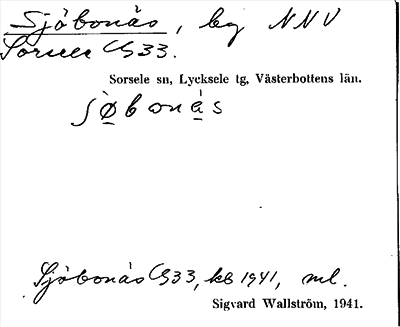 Sjöbonäs, by NNV
Sorsele G33.
Sorsele sn, Lycksele tg, Västerbottens län.
Sjöbonäs G33, kB 1941, ml.
Sigvard Wallström, 1941.